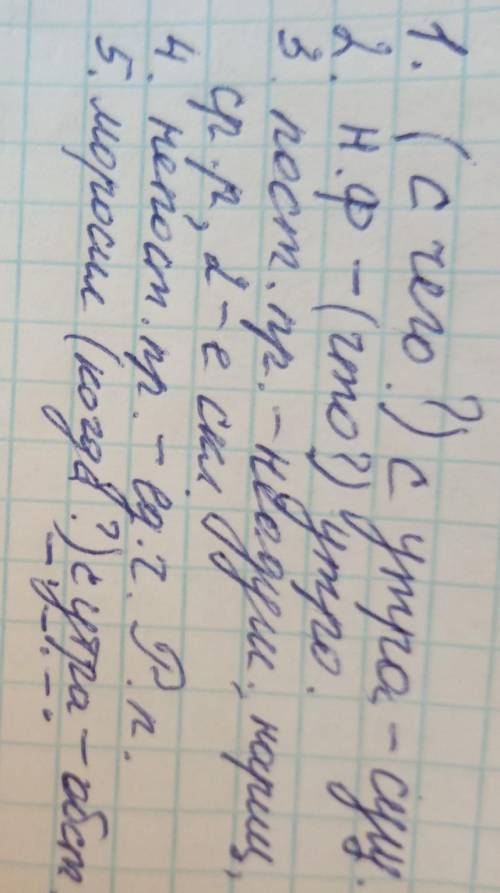 1. (с чего?) с утра, - сущ.
2. н.ф - (что?) утро.
3. пост. пр. - неодуш., нариц.,
ср. р, 2-е скл.
4. непост. пр. - ед. ч. Р. п.
5. моросил (когда?) с утра - обст.